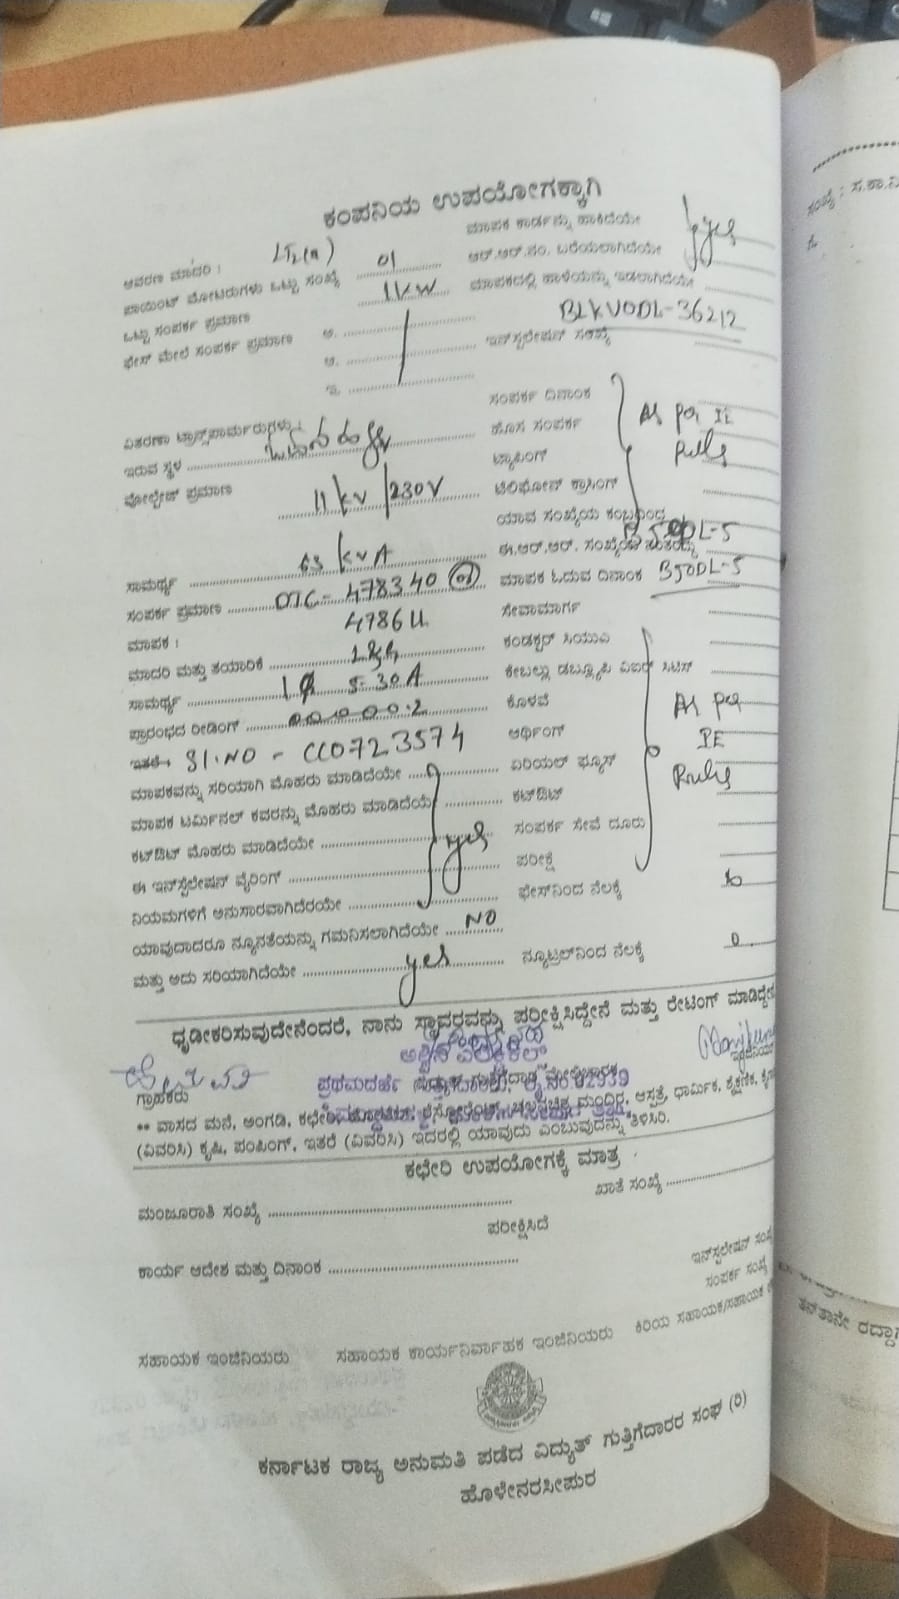 ಕಂಪನಿಯ ಉಪಯೋಗಕ್ಕಾಗಿ
ಆವರಣ ಮಾದರಿ : LT2(a) ಮಾಪಕ ಕಾರ್ಡನ್ನು ಹಾಕಿದೆಯೇ
ಪಾಯಿಂಟ್ ಮೋಟರುಗಳು ಒಟ್ಟು ಸಂಖ್ಯೆ 01 ಆರ್.ಆರ್.ನಂ. ಬರೆಯಲಾಗಿದೆಯೇ yes
ಒಟ್ಟು ಸಂಪರ್ಕ ಪ್ರಮಾಣ 1KW ಮಾಪಕದಲ್ಲಿ ಹಾಳೆಯನ್ನು ಇಡಲಾಗಿದೆಯೇ
ಫೇಸ್ ಮೇಲೆ ಸಂಪರ್ಕ ಪ್ರಮಾಣ ಅ. ಇನ್‌ಸ್ಟಲೇಷನ್ ಸಂಖ್ಯೆ BLKVODL-36212
ಆ.
ಇ. ಸಂಪರ್ಕ ದಿನಾಂಕ
ವಿತರಣಾ ಟ್ರಾನ್ಸ್‌ಫಾರ್ಮರುಗಳು : ಹೊಸ ಸಂಪರ್ಕ As per IE
ಇರುವ ಸ್ಥಳ ಟ್ಯಾಪಿಂಗ್ Rules
ವೋಲ್ಟೇಜ್ ಪ್ರಮಾಣ 11 KV/230V ಟೆಲಿಫೋನ್ ಕ್ರಾಸಿಂಗ್
ಯಾವ ಸಂಖ್ಯೆಯ ಕಂಬದಿಂದ
ಸಾಮರ್ಥ್ಯ 63 KVA ಈ.ಆರ್.ಆರ್. ಸಂಖ್ಯೆಯ
ಸಂಪರ್ಕ ಪ್ರಮಾಣ DTC- 478340 ಮಾಪಕ ಓದುವ ದಿನಾಂಕ BJODL-5
ಮಾಪಕ : ಸೇವಾಮಾರ್ಗ
ಮಾದರಿ ಮತ್ತು ತಯಾರಿಕೆ L&G ಕಂಡಕ್ಟರ್ ಸಿಯುಎ
ಸಾಮರ್ಥ್ಯ 1Φ 5-30A ಕೇಬಲ್ಲು ಡಬ್ಲ್ಯೂಪಿ ಏಐಆರ್ ಸಿಟಿಸ್
ಪ್ರಾರಂಭದ ರೀಡಿಂಗ್ 000000.2 ಕೊಳವೆ As per
ಇತರೆ : Sl.NO - CC0723574 ಅರ್ಥಿಂಗ್ IE
ಮಾಪಕವನ್ನು ಸರಿಯಾಗಿ ಮೊಹರು ಮಾಡಿದೆಯೇ ಏರಿಯಲ್ ಫ್ಯೂಸ್ Rules
ಮಾಪಕ ಟರ್ಮಿನಲ್ ಕವರನ್ನು ಮೊಹರು ಮಾಡಿದೆಯೆ ಕಟ್‌ಔಟ್
ಕಟ್‌ಔಟ್ ಮೊಹರು ಮಾಡಿದೆಯೇ yes ಸಂಪರ್ಕ ಸೇವೆ ದೂರು
ಈ ಇನ್‌ಸ್ಟಲೇಷನ್ ವೈರಿಂಗ್ ಪರೀಕ್ಷೆ
ನಿಯಮಗಳಿಗೆ ಅನುಸಾರವಾಗಿದೆರಯೇ ಫೇಸ್‌ನಿಂದ ನೆಲಕ್ಕೆ
ಯಾವುದಾದರೂ ನ್ಯೂನತೆಯನ್ನು ಗಮನಿಸಲಾಗಿದೆಯೇ NO
ಮತ್ತು ಅದು ಸರಿಯಾಗಿದೆಯೇ yes ನ್ಯೂಟ್ರಲ್‌ನಿಂದ ನೆಲಕ್ಕೆ 0
ಧೃಡೀಕರಿಸುವುದೇನೆಂದರೆ, ನಾನು ಸ್ಥಾವರವನ್ನು ಪರೀಕ್ಷಿಸಿದ್ದೇನೆ ಮತ್ತು ರೇಟಿಂಗ್ ಮಾಡಿದ್ದೇನೆ
ಗ್ರಾಹಕರು
** ವಾಸದ ಮನೆ, ಅಂಗಡಿ, ಕಛೇರಿ, ಮಂದಿರ, ಆಸ್ಪತ್ರೆ, ಧಾರ್ಮಿಕ, ಶೈಕ್ಷಣಿಕ,
(ವಿವರಿಸಿ) ಕೃಷಿ, ಪಂಪಿಂಗ್, ಇತರೆ (ವಿವರಿಸಿ) ಇದರಲ್ಲಿ ಯಾವುದು ಎಂಬುವುದನ್ನು ತಿಳಿಸಿರಿ.
ಕಛೇರಿ ಉಪಯೋಗಕ್ಕೆ ಮಾತ್ರ
ಮಂಜೂರಾತಿ ಸಂಖ್ಯೆ ಖಾತೆ ಸಂಖ್ಯೆ
ಪರೀಕ್ಷಿಸಿದೆ
ಕಾರ್ಯ ಆದೇಶ ಮತ್ತು ದಿನಾಂಕ ಇನ್‌ಸ್ಟಲೇಷನ್
ಸಂಪರ್ಕ ಸಂಖ್ಯೆ
ಸಹಾಯಕ ಇಂಜಿನಿಯರು ಸಹಾಯಕ ಕಾರ್ಯನಿರ್ವಾಹಕ ಇಂಜಿನಿಯರು ಕಿರಿಯ ಸಹಾಯಕ/ಸಹಾಯಕ
ಕರ್ನಾಟಕ ರಾಜ್ಯ ಅನುಮತಿ ಪಡೆದ ವಿದ್ಯುತ್ ಗುತ್ತಿಗೆದಾರರ ಸಂಘ (ರಿ)
ಹೊಳೇನರಸೀಪುರ